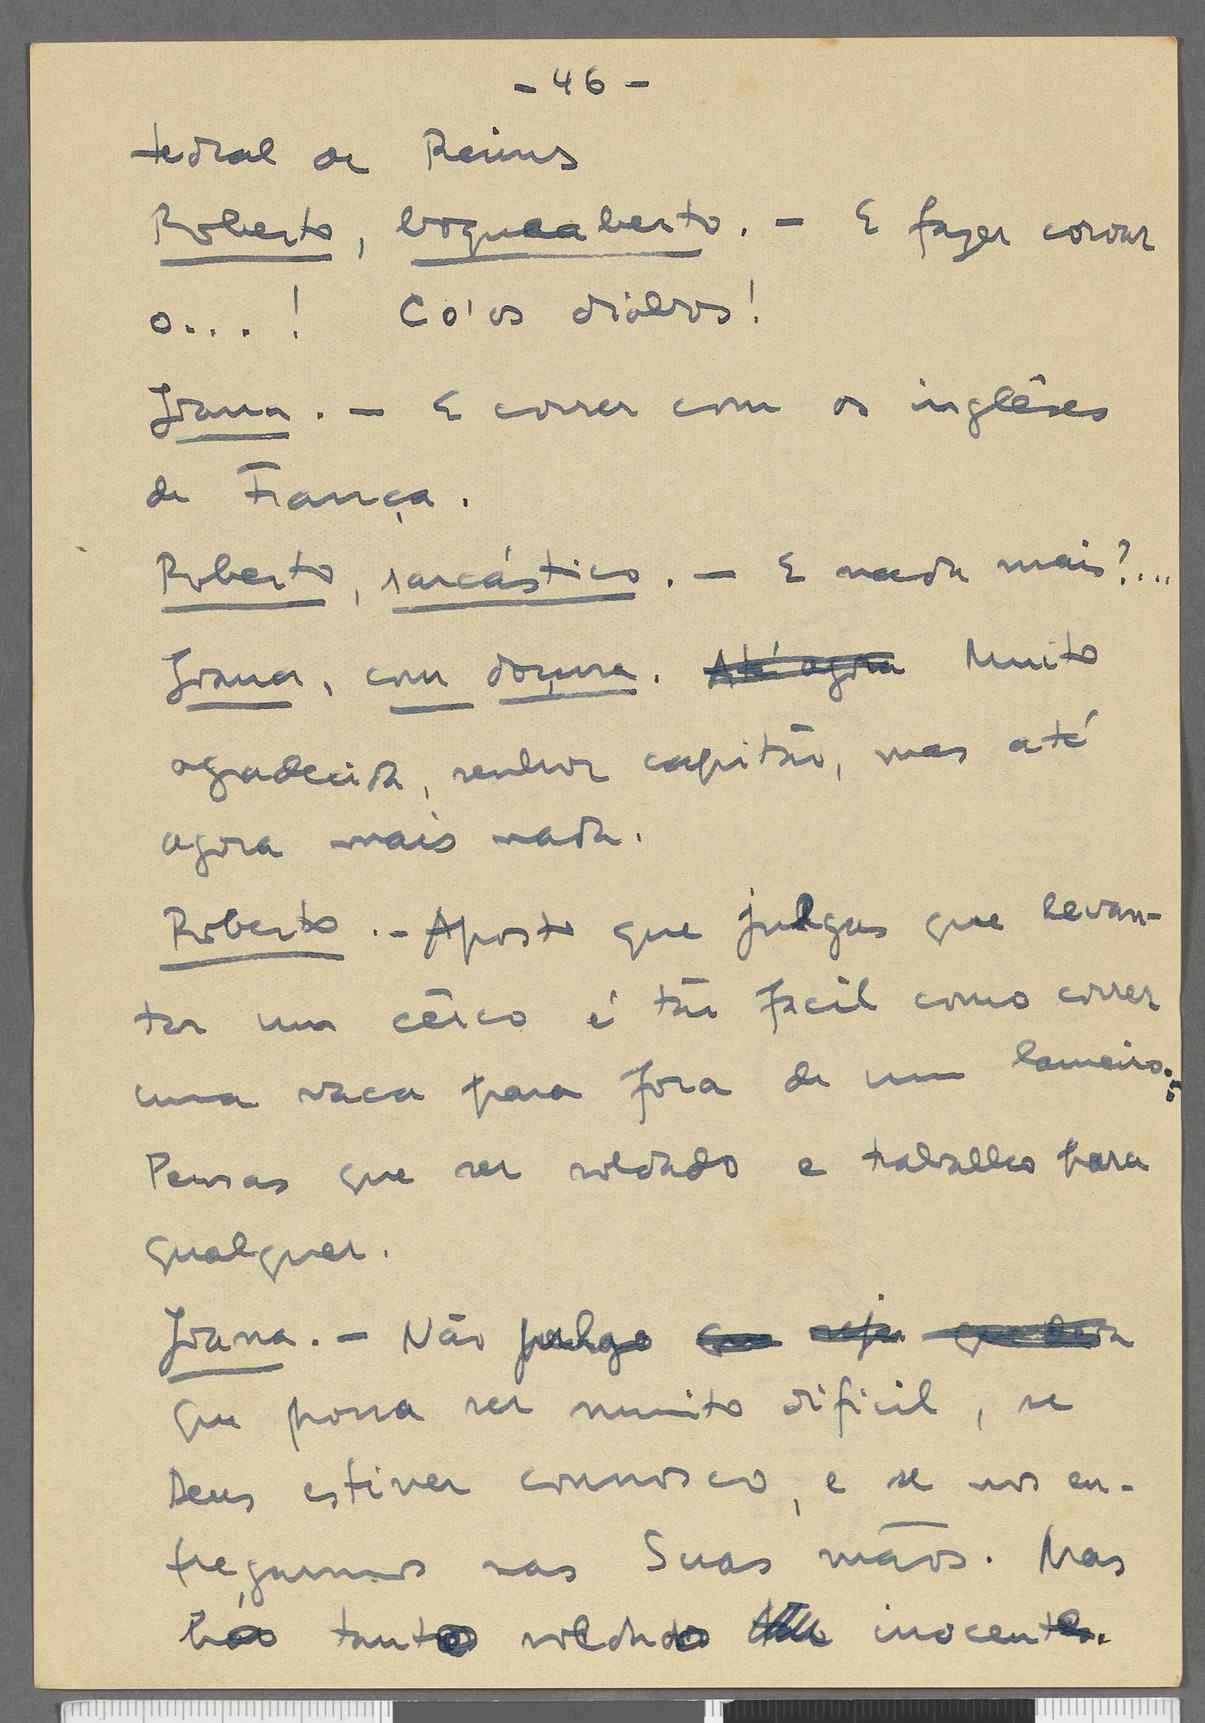 - 46 -
tedral de Reims
Roberto, boquiaberto. - E fazer coroar
o... ! Co'os diabos!
Joana. - E correr com os inglêses
de França.
Roberto, sarcástico. - E nada mais?...
Joana, com doçura. Até agora Muito
agradecida, senhor capitão, mas até
agora mais nada.
Roberto. - Aposto que julgas que levan-
tar um cêrco é tão facil como correr
uma vaca para fora de um lameiro.
Pensas que ser soldado e trabalho para
qualquer.
Joana. - Não julgo que seja
que possa ser muito dificil, se
Deus estiver connosco, e se nos en-
tregarmos nas Suas mãos. Mas
há tanto soldado inocente.